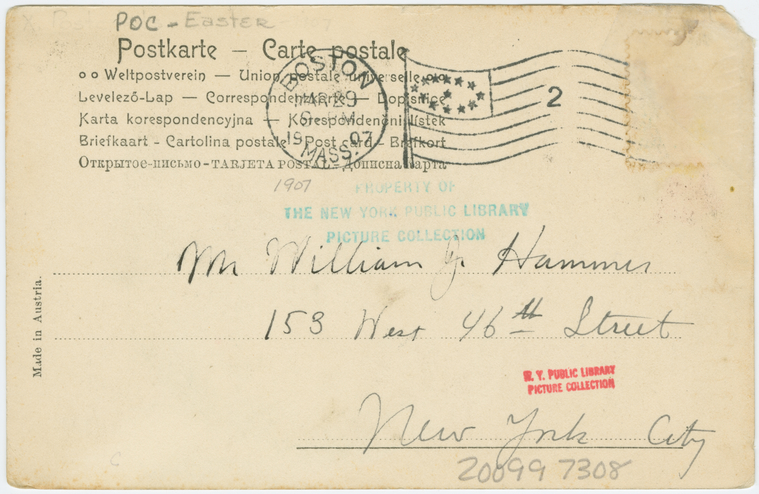 POC - Easter
Postkarte – Carte postale
Weltpostverein — Union postale universelle
Levelező-Lap — Correspondenzkarte — Dopisnice
Karta korespondencyjna — Korespondenční lístek
Briefkaart - Cartolina postale - Post card - Brefkort
Открытое-письмо - TARJETA POSTAL - Дописна карта
BOSTON
MAR 29
1907
MASS.
2
1907
PROPERTY OF
THE NEW YORK PUBLIC LIBRARY
PICTURE COLLECTION
Mr William J. Hammer
153 West 46th Street
N. Y. PUBLIC LIBRARY
PICTURE COLLECTION
New York City
20099 7308
Made in Austria.